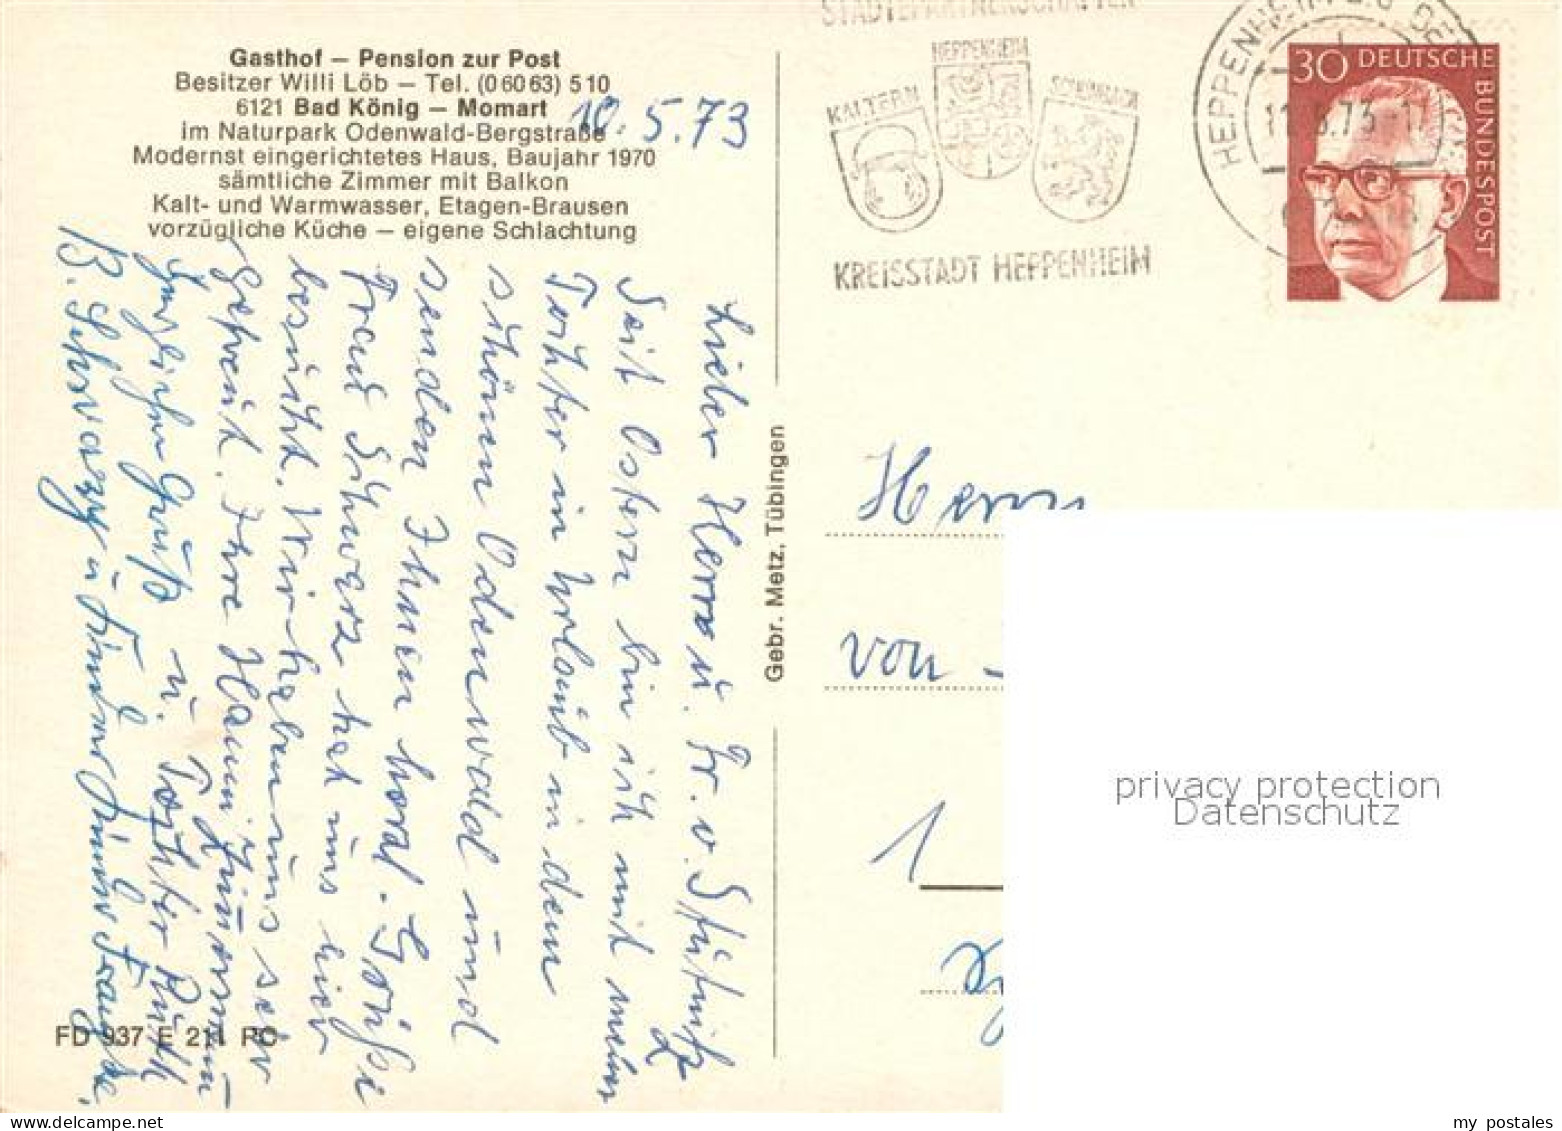 Gasthof – Pension zur Post
Besitzer Willi Löb – Tel. (0 60 63) 5 10
6121 Bad König – Momart
im Naturpark Odenwald-Bergstraße
Modernst eingerichtetes Haus, Baujahr 1970
sämtliche Zimmer mit Balkon
Kalt- und Warmwasser, Etagen-Brausen
vorzügliche Küche – eigene Schlachtung
10.5.73
Lieber Herr u. Fr. v. Stülpnitz
Seit Ostern bin ich mit meiner
Tochter in Urlaub in dem
schönen Odenwald und
senden Ihnen horzl. Grüße
Freud Schwarz hat uns hier
besucht. Wir haben uns sehr
gefreut. Ihre Hanni Zimmermann
u. Tochter Ruth
Herzlichen Gruß
B. Schwarz u
FD 937 E 211 PC
Gebr. Metz, Tübingen
STÄDTEPARTNERSCHAFTEN
KALTERN
HEPPENHEIM
KREISSTADT HEPPENHEIM
HEPPENHEIM
30 DEUTSCHE BUNDESPOST
Herrn
von
1
privacy protection
Datenschutz
my postales